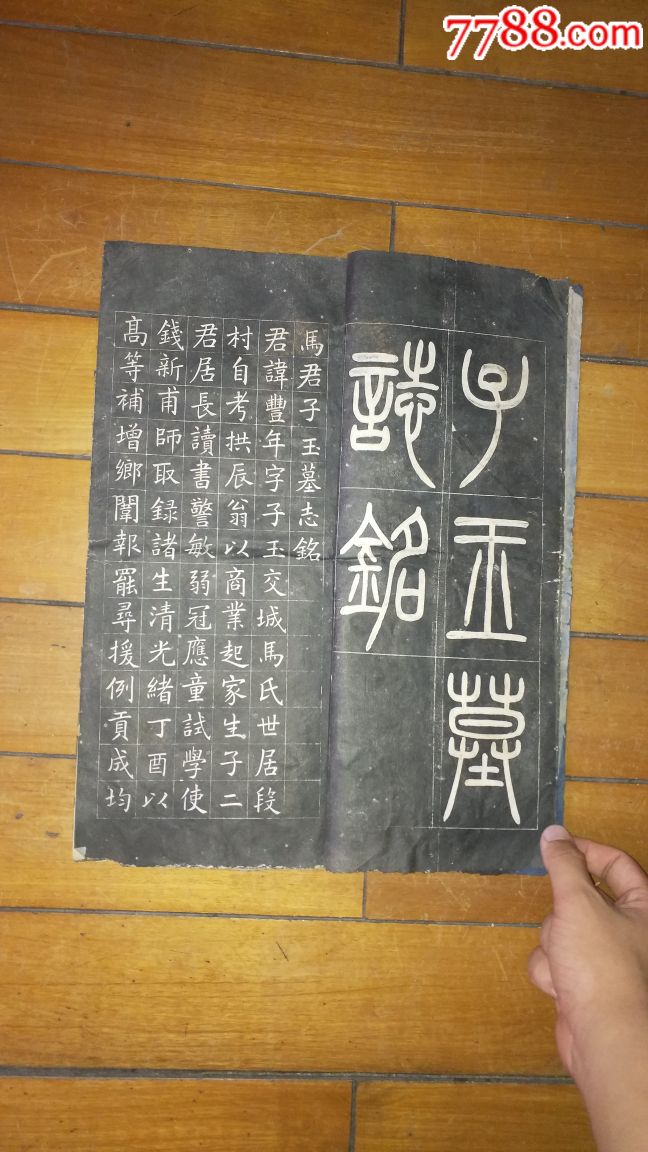 7788.com
子玉墓
誌銘
馬君子玉墓志銘
君諱豐年字子玉交城馬氏世居段
村自考拱辰翁以商業起家生子二
君居長讀書警敏弱冠應童試學使
錢新甫師取録諸生清光緒丁酉以
高等補增鄉闈報罷尋援例貢成均